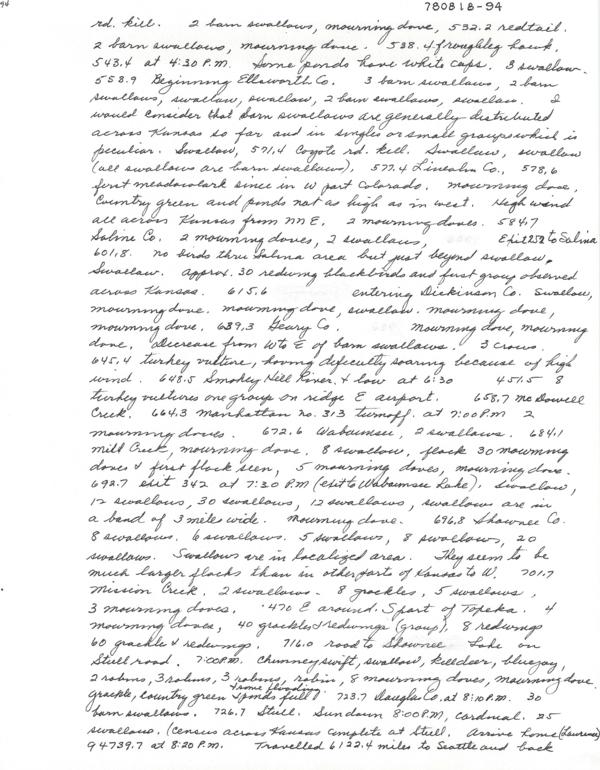 94
780818-94
rd. kill. 2 barn swallows, mourning dove, 532.2 redtail.
2 barn swallows, mourning dove. 538.4 froughleg hawk.
543.4 at 4:30 P.M. Some ponds have white caps. 3 swallow.
558.9 Beginning Ellsworth Co. 3 barn swallows, 2 barn
swallows, swallow, swallow, 2 barn swallows, swallow. I
would consider that barn swallows are generally distributed
across Kansas so far and in singles or small groups which is
peculiar. Swallow, 571.4 Coyote rd. kill. Swallow, swallow
(all swallows are barn swallows), 577.4 Lincoln Co., 578.6
first meadowlark since in W part Colorado. mourning dove,
Country green and ponds not as high as in west. High wind
all across Kansas from NNE. 2 mourning doves. 584.7
Saline Co. 2 mourning doves, 2 swallows, Exit 252 to Salina
601.8. No birds thru Salina area but just beyond swallow.
Swallow. Approx. 30 redwing blackbirds and first group observed
across Kansas. 615.6 entering Dickinson Co. Swallow,
mourning dove. mourning dove, swallow. mourning dove,
mourning dove. 639.3 Geary Co. Mourning dove, mourning
dove. Decrease from W to E of barn swallows. 3 crows.
645.4 turkey vulture, having deficulty soaring because of high
wind. 648.5 Smokey Hill River, & low at 6:30 451.5 8
turkey vultures one group on ridge E airport. 658.7 McDowell
Creek. 664.3 Manhattan No. 313 turnoff. at 7:00 P.M 2
mourning doves. 672.6 Wabaunsee, 2 swallows. 684.1
Mill Creek, mourning dove. 8 swallow, flock 30 mourning
doves & first flock seen, 5 mourning doves, mourning dove.
692.7 exit 342 at 7:30 P.M (exit to Wabaunsee Lake). Swallow,
12 swallows, 30 swallows, 12 swallows, swallows are in
a band of 3 miles wide. Mourning dove. 696.8 Shawnee Co.
8 swallows. 6 swallows. 5 swallows, 8 swallows, 20
swallows. Swallows are in localized area. They seem to be
much larger flocks than in other parts of Kansas to W. 701.7
Mission Creek. 2 swallows. 8 grackles, 5 swallows,
3 mourning doves. 470 E around S part of Topeka. 4
mourning doves, 40 grackles & redwings (group), 8 redwings
60 grackle & redwings. 716.0 road to Shawnee Lake on
Stull road. 7:00 P.M. Chimney swift, swallow, killdeer, bluejay,
2 robins, 3 robins, 3 robins, robin, 8 mourning doves, mourning dove.
grackle, country green & some flooding & ponds full 723.7 Douglas Co. at 8:10 P.M. 30
barn swallows. 726.7 Stull. Sundown 8:00 P.M, cardinal. 25
swallows. (Census across Kansas complete at Stull. Arrive home (Lawrence)
94739.7 at 8:20 P.M. Travelled 6122.4 miles to Seattle and back